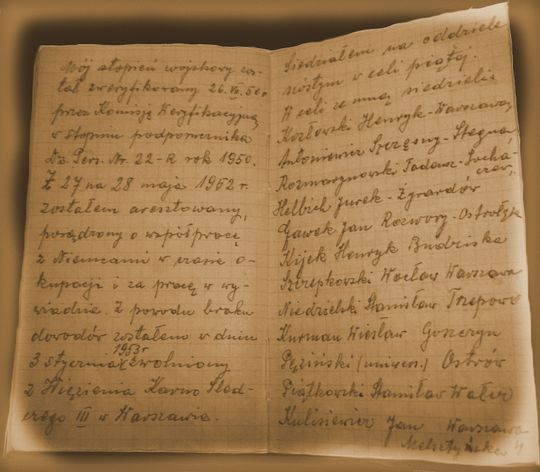 Mój stopień wojskowy zo-
stał zweryfikowany 26.VI.50r
przez Komisję Weryfikacyjną
w stopniu podporucznika
Dz. Pers. Nr. 22-R rok 1950.
Z 27 na 28 maja 1952 r.
zostałem aresztowany,
posądzony o współpracę
z Niemcami w czasie o-
kupacji i za pracę w wy-
wiadzie. Z powodu braku
dowodów zostałem w dniu
3 stycznia 1953r zwolniony
z Więzienia Karno Śled-
czego III w Warszawie.
Siedziałem na oddziele
szóstym w celi piątej.
W celi ze mną siedzieli
Kozłowski Henryk-Warszawa,
Antoniewicz Szczęsny-Stegna
Rozmarynowski Tadeusz-Sucha-
Helbich Jurek-Żyrardów
Gawek Jan Rozwory-Ostrołęk
Kijek Henryk Budziska
Szczepkowski Wacław Warszawa
Niedzielski Stanisław Trzepowo
Kurman Wiesław Goszczyn
Pęziński (uniwers.) Ostrów
Piątkowski Stanisław Walter
Kulisiewicz Jan Warszawa